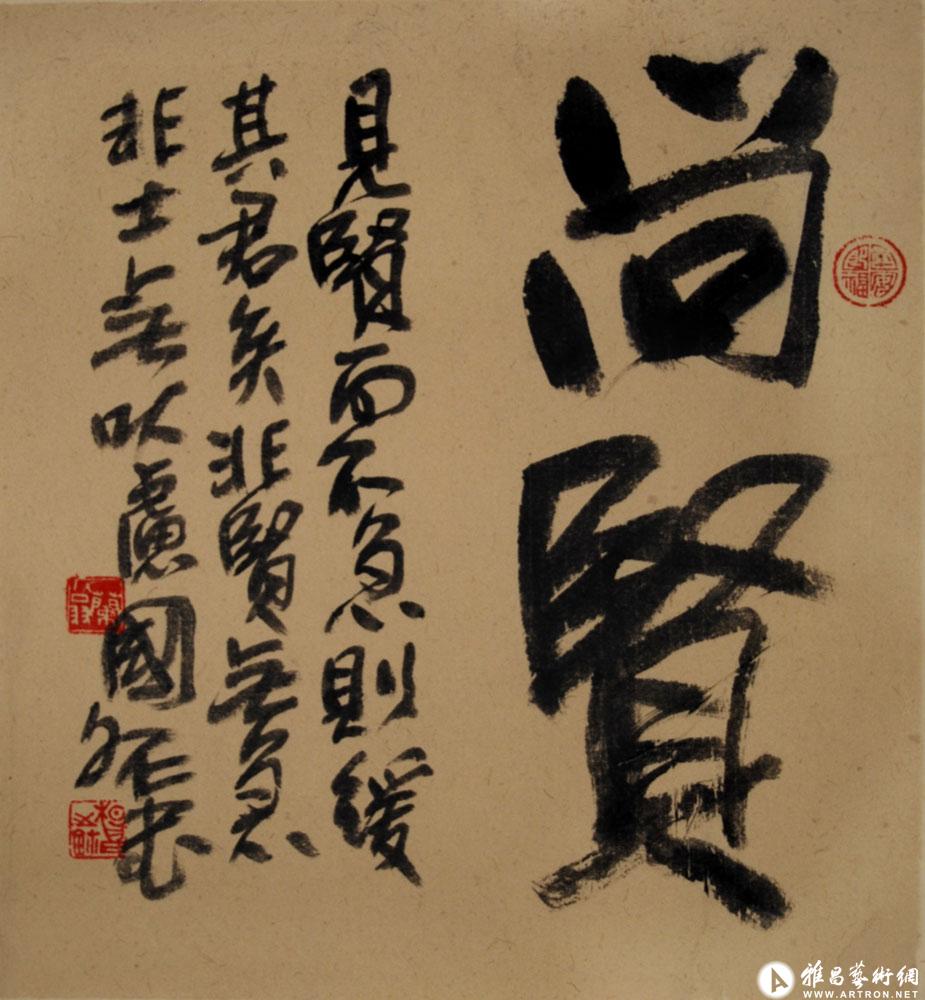 尚賢
見賢而不急則緩
其君矣非賢無急
非士無以慮國
書
雅昌藝術網
WWW.ARTRON.NET